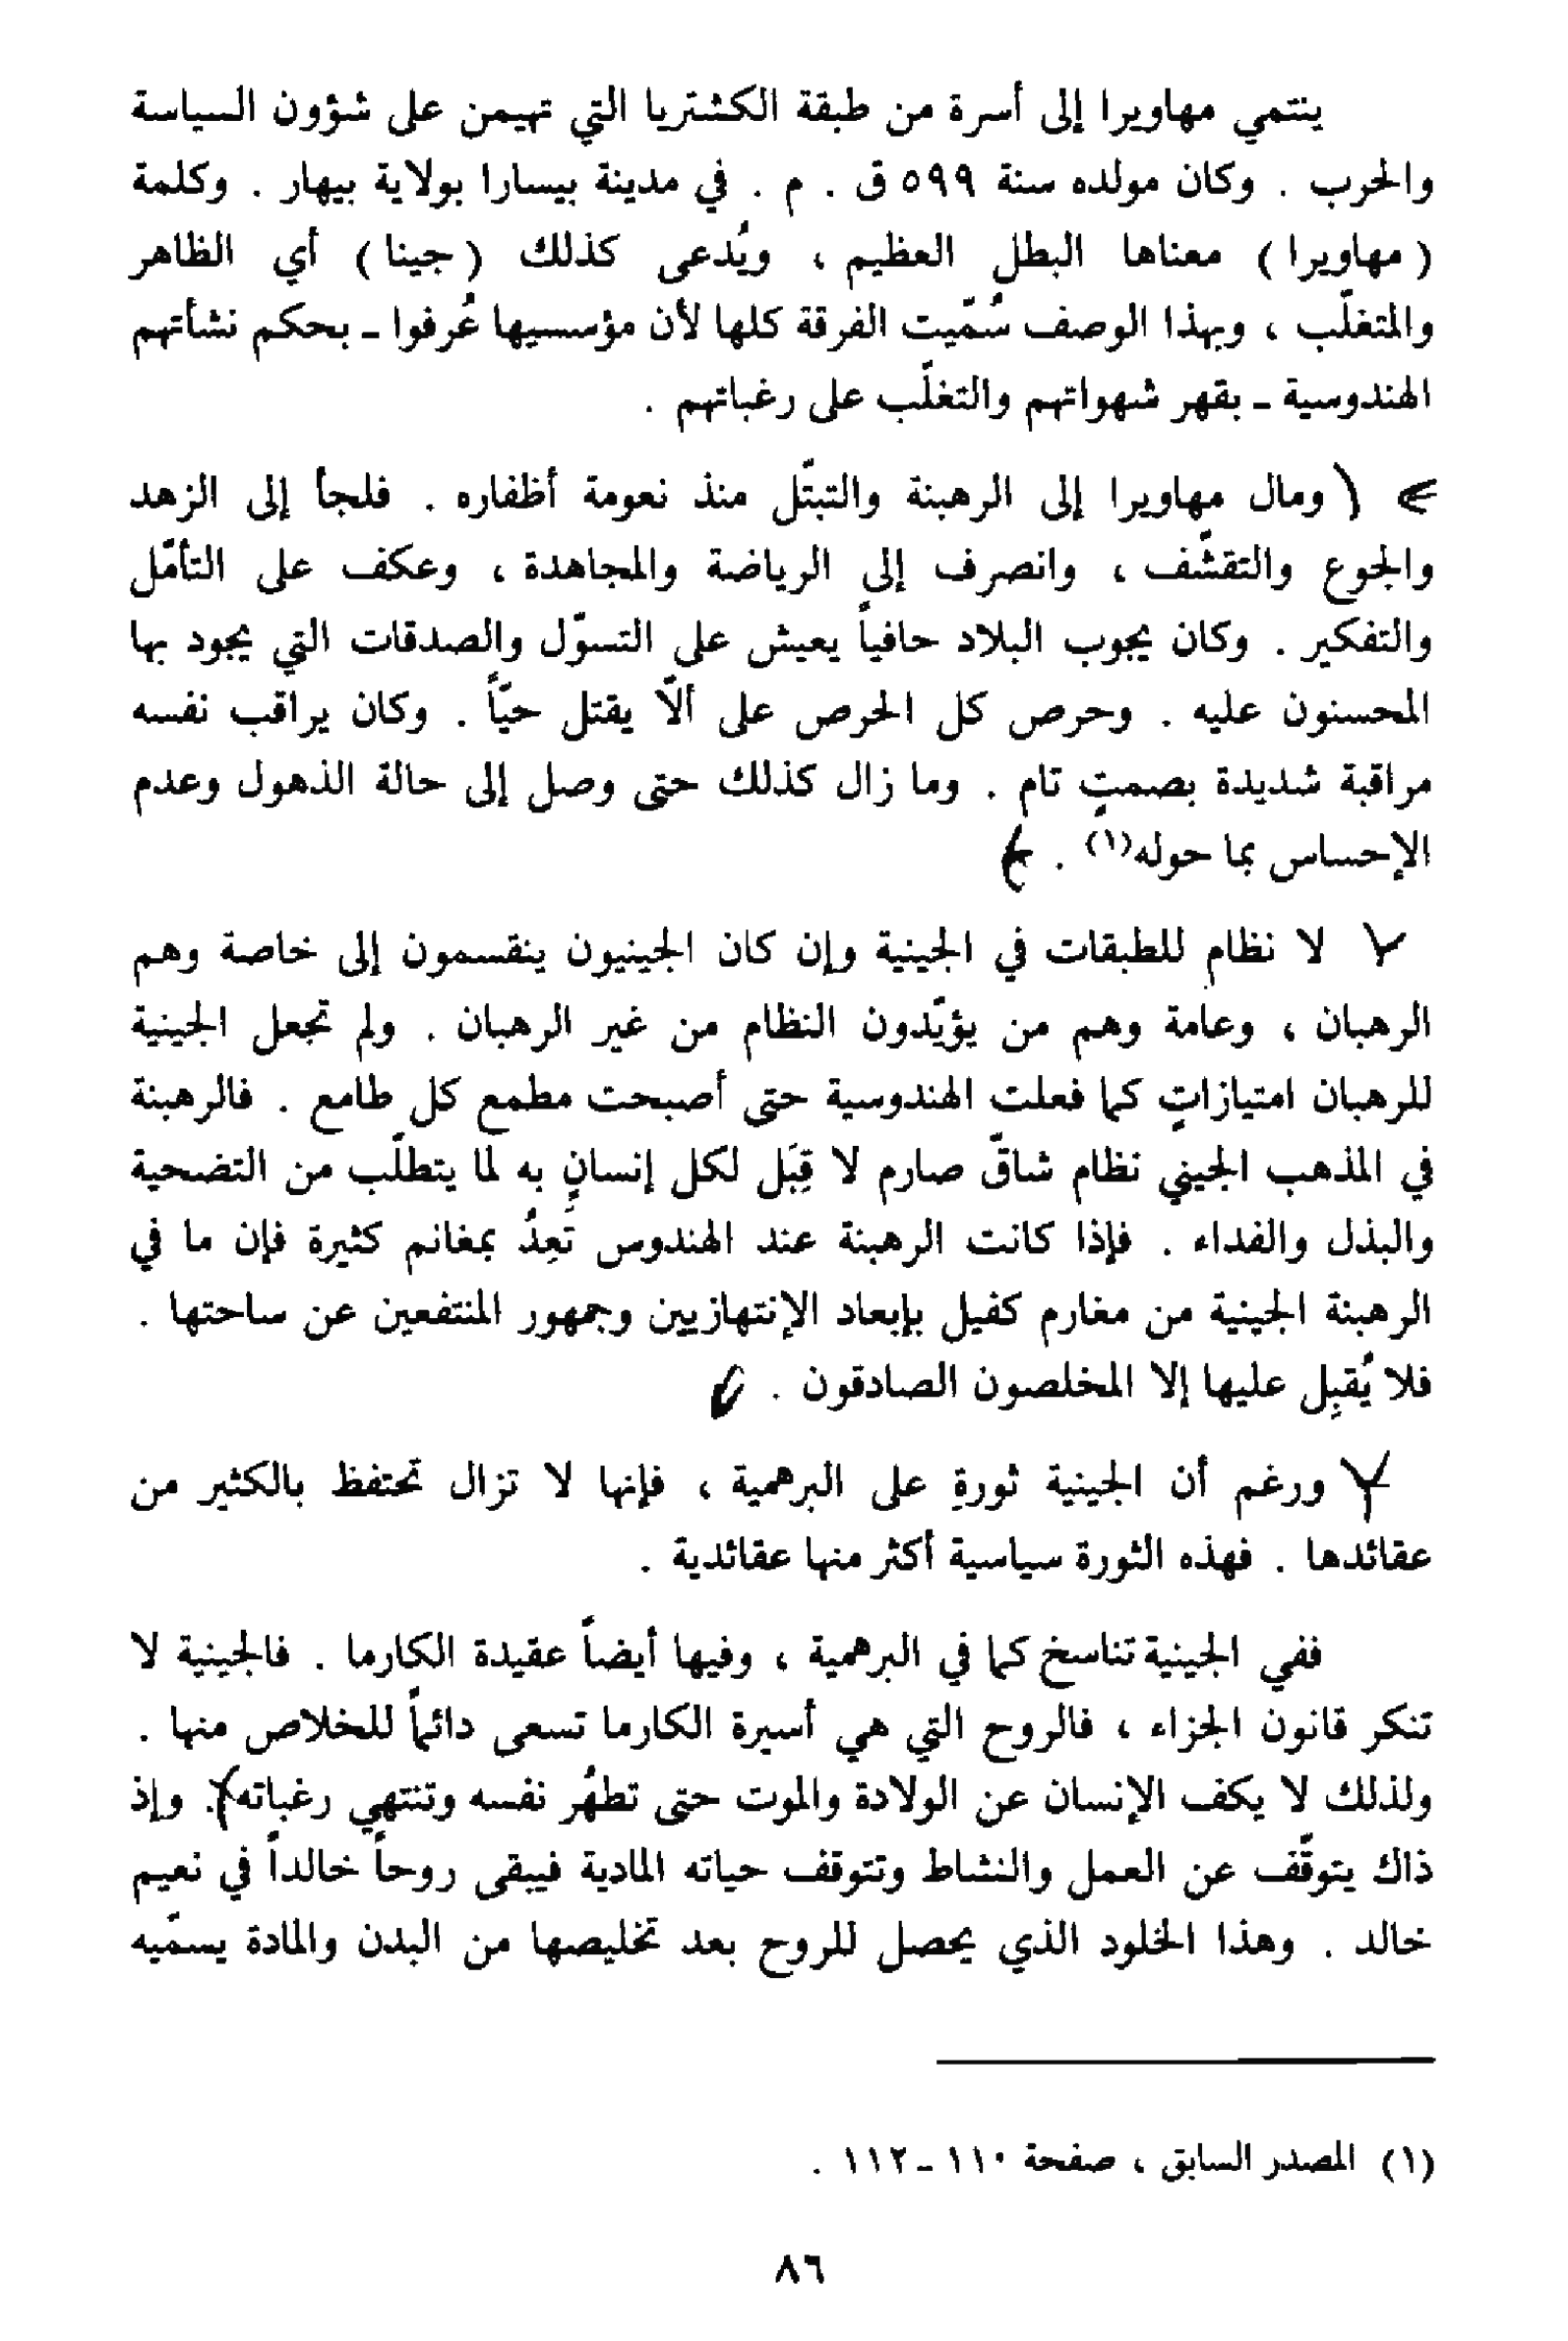 ينتمي مهاويرا إلى أسرة من طبقة الكشتريا التي تهيمن على شؤون السياسة
والحرب . وكان مولده سنة ٥٩٩ ق . م . في مدينة بيسارا بولاية بيهار . وكلمة
( مهاويرا ) معناها البطل العظيم ، ويُدعى كذلك ( جينا ) أي الظاهر
والمتغلّب ، وبهذا الوصف سُمّيت الفرقة كلها لأن مؤسسيها عُرفوا ـ بحكم نشأتهم
الهندوسية ـ بقهر شهواتهم والتغلّب على رغباتهم .
ومال مهاويرا إلى الرهبنة والتبتّل منذ نعومة أظفاره . فلجأ إلى الزهد
والجوع والتقشّف ، وانصرف إلى الرياضة والمجاهدة ، وعكف على التأمّل
والتفكير . وكان يجوب البلاد حافياً يعيش على التسوّل والصدقات التي يجود بها
المحسنون عليه . وحرص كل الحرص على ألّا يقتل حيّاً . وكان يراقب نفسه
مراقبة شديدة بصمتٍ تام . وما زال كذلك حتى وصل إلى حالة الذهول وعدم
الإحساس بما حوله(١) .
لا نظام للطبقات في الجينية وإن كان الجينيون ينقسمون إلى خاصة وهم
الرهبان ، وعامة وهم من يؤيّدون النظام من غير الرهبان . ولم تجعل الجينية
للرهبان امتيازاتٍ كما فعلت الهندوسية حتى أصبحت مطمع كل طامع . فالرهبنة
في المذهب الجيني نظام شاقّ صارم لا قِبَل لكل إنسانٍ به لما يتطلّب من التضحية
والبذل والفداء . فإذا كانت الرهبنة عند الهندوس تَعِدُ بمغانم كثيرة فإن ما في
الرهبنة الجينية من مغارم كفيل بإبعاد الإنتهازيين وجمهور المنتفعين عن ساحتها .
فلا يُقبِل عليها إلا المخلصون الصادقون .
ورغم أن الجينية ثورةٍ على البرهمية ، فإنها لا تزال تحتفظ بالكثير من
عقائدها . فهذه الثورة سياسية أكثر منها عقائدية .
ففي الجينية تناسخ كما في البرهمية ، وفيها أيضاً عقيدة الكارما . فالجينية لا
تنكر قانون الجزاء ، فالروح التي هي أسيرة الكارما تسعى دائماً للخلاص منها .
ولذلك لا يكف الإنسان عن الولادة والموت حتى تطهُر نفسه وتنتهي رغباته . وإذ
ذاك يتوقّف عن العمل والنشاط وتتوقف حياته المادية فيبقى روحاً خالداً في نعيم
خالد . وهذا الخلود الذي يحصل للروح بعد تخليصها من البدن والمادة يسمّيه
(١) المصدر السابق ، صفحة ١١٠ ـ ١١٢ .
٨٦